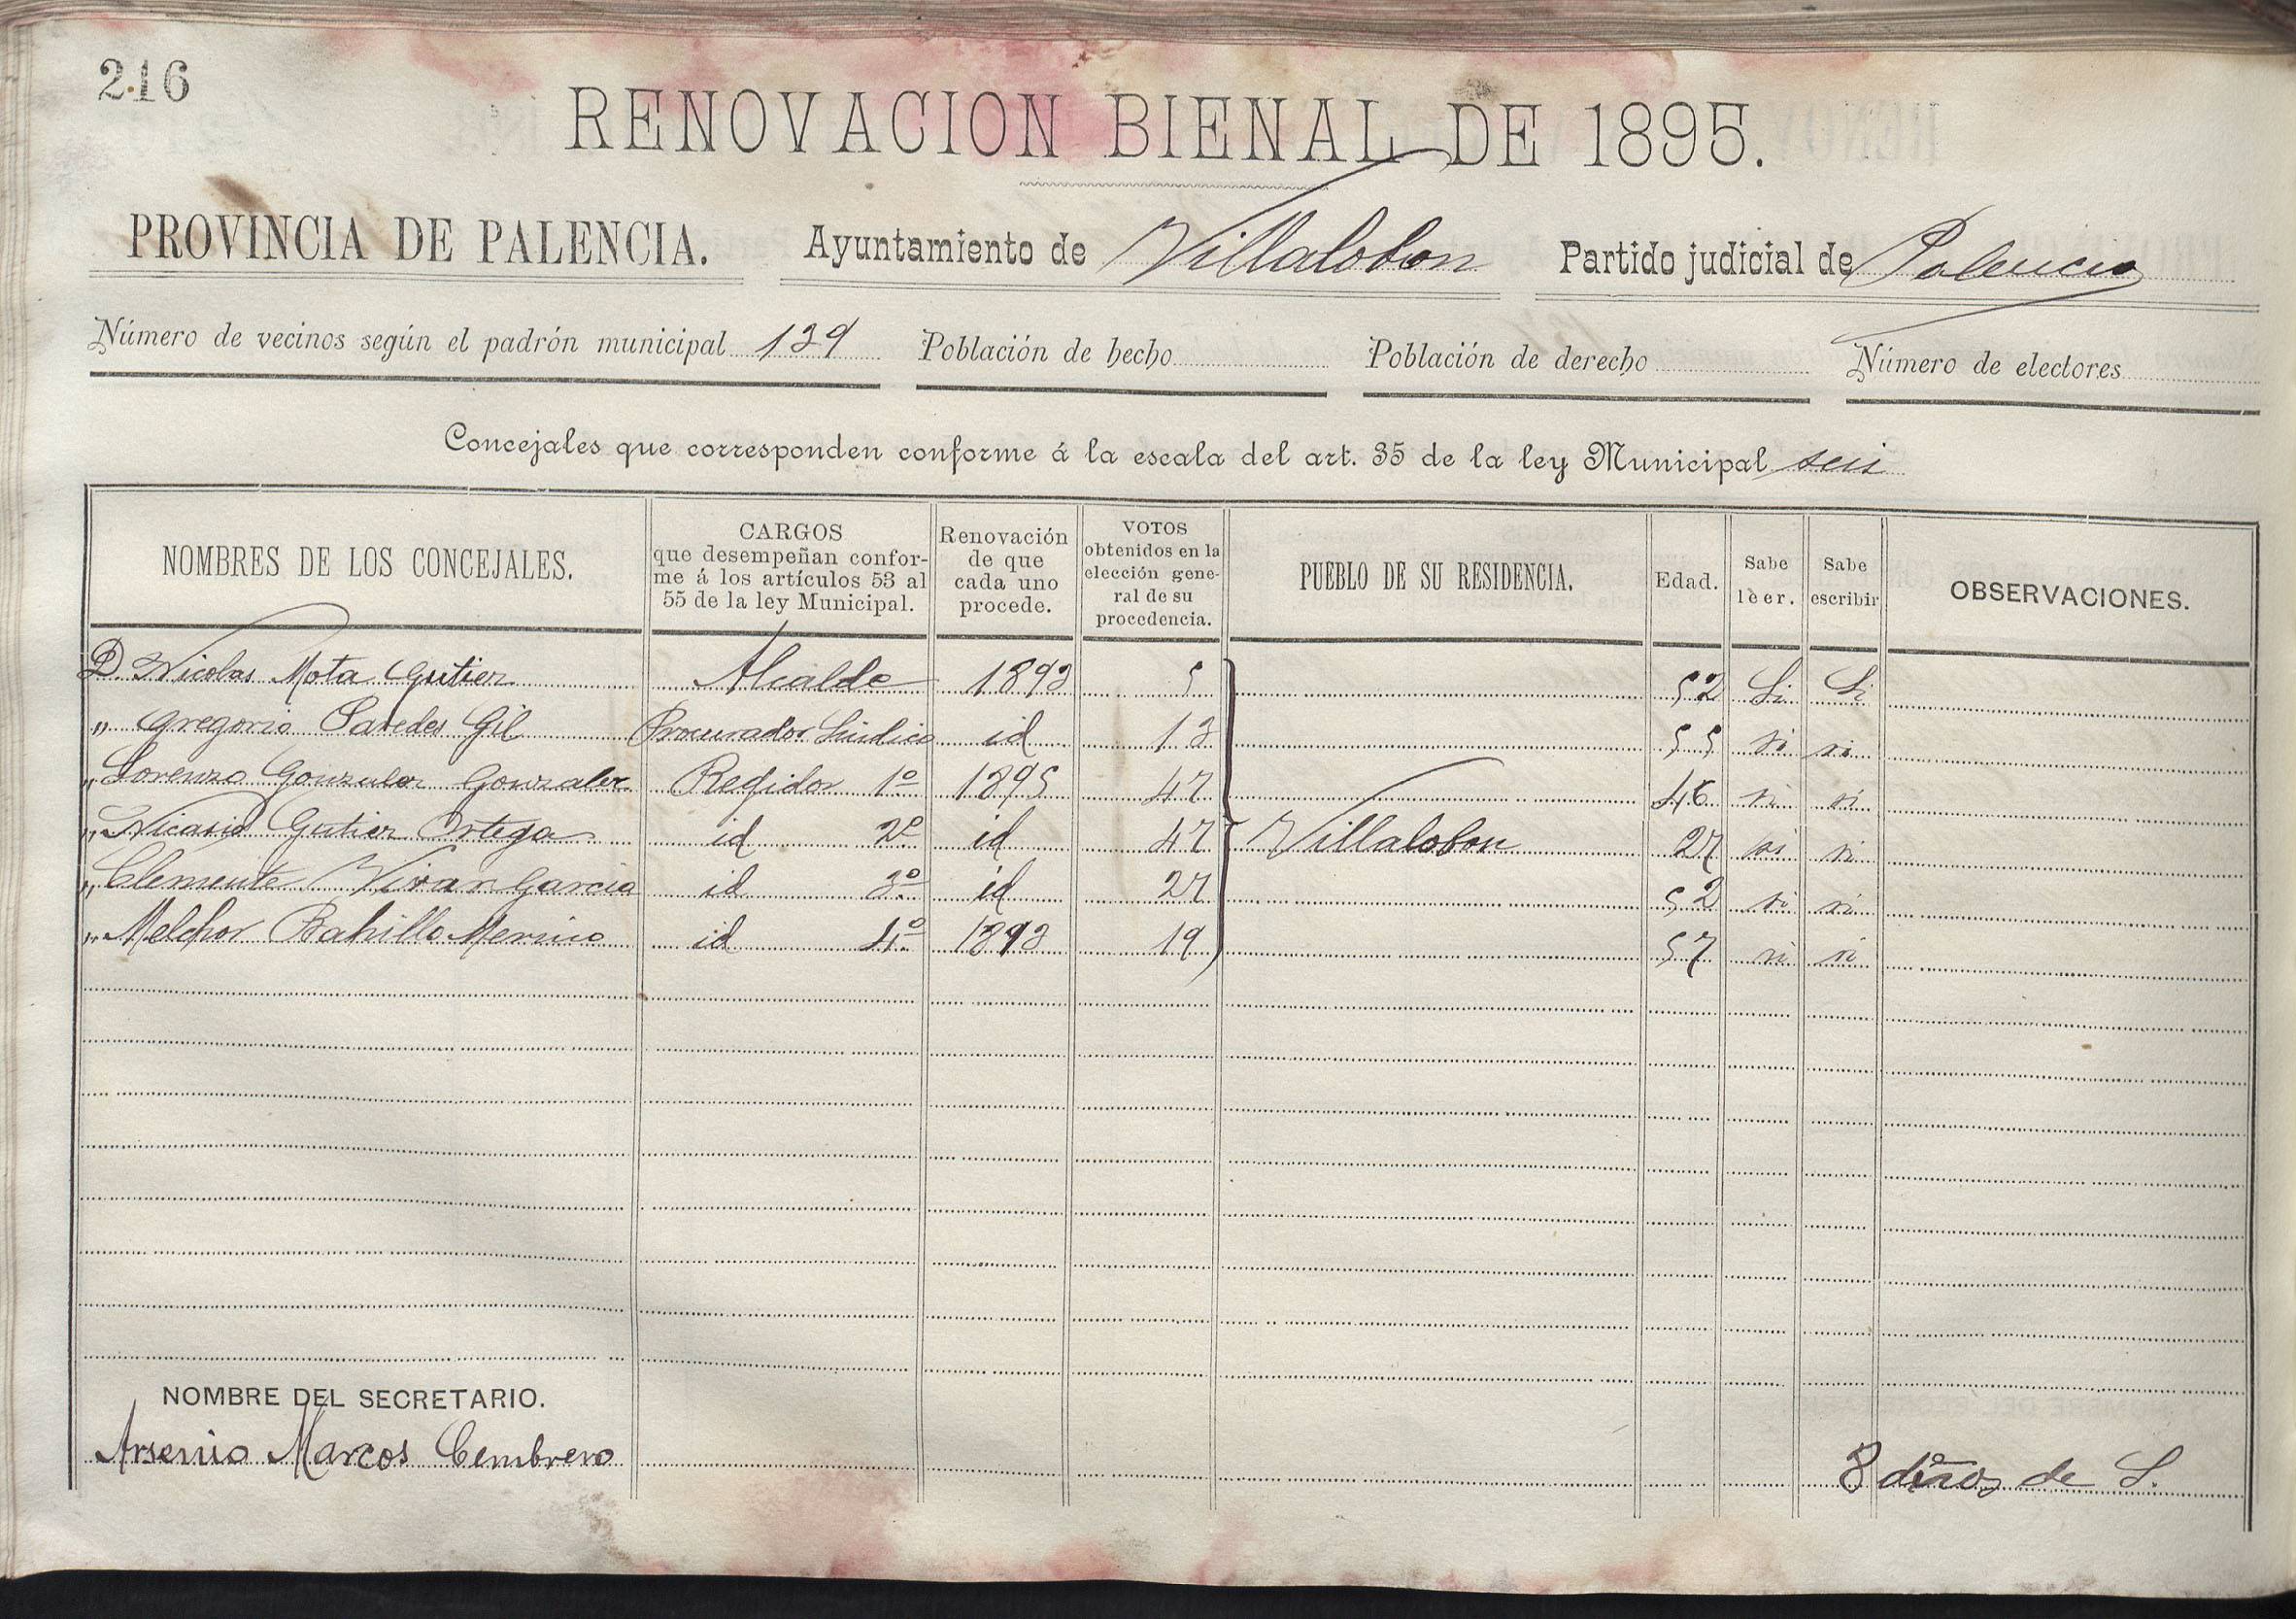 216
RENOVACION BIENAL DE 1895.
PROVINCIA DE PALENCIA. Ayuntamiento de Villalobon Partido judicial de Palencia
Número de vecinos según el padrón municipal 139 Población de hecho Población de derecho Número de electores
Concejales que corresponden conforme á la escala del art. 35 de la ley Municipal seis
NOMBRES DE LOS CONCEJALES. CARGOS que desempeñan conforme á los artículos 53 al 55 de la ley Municipal. Renovación de que cada uno procede. VOTOS obtenidos en la elección general de su procedencia. PUEBLO DE SU RESIDENCIA. Edad. Sabe leer. Sabe escribir OBSERVACIONES.
D. Nicolas Mota Gutier Alcalde 1893 5 52 Si Si
" Gregorio Paredes Gil Procurador Sindico id 13 55 si si
" Lorenzo Gonzalez Gonzalez Regidor 1º 1895 47 46 si si
" Nicasio Gutier Ortega id 2º id 47 Villalobon 27 si si
" Clemente Vivar Garcia id 3º id 27 52 si si
" Melchor Bahillo Merino id 4º 1893 19 57 si si
NOMBRE DEL SECRETARIO.
Arsenio Marcos Cembrero
8 de S.